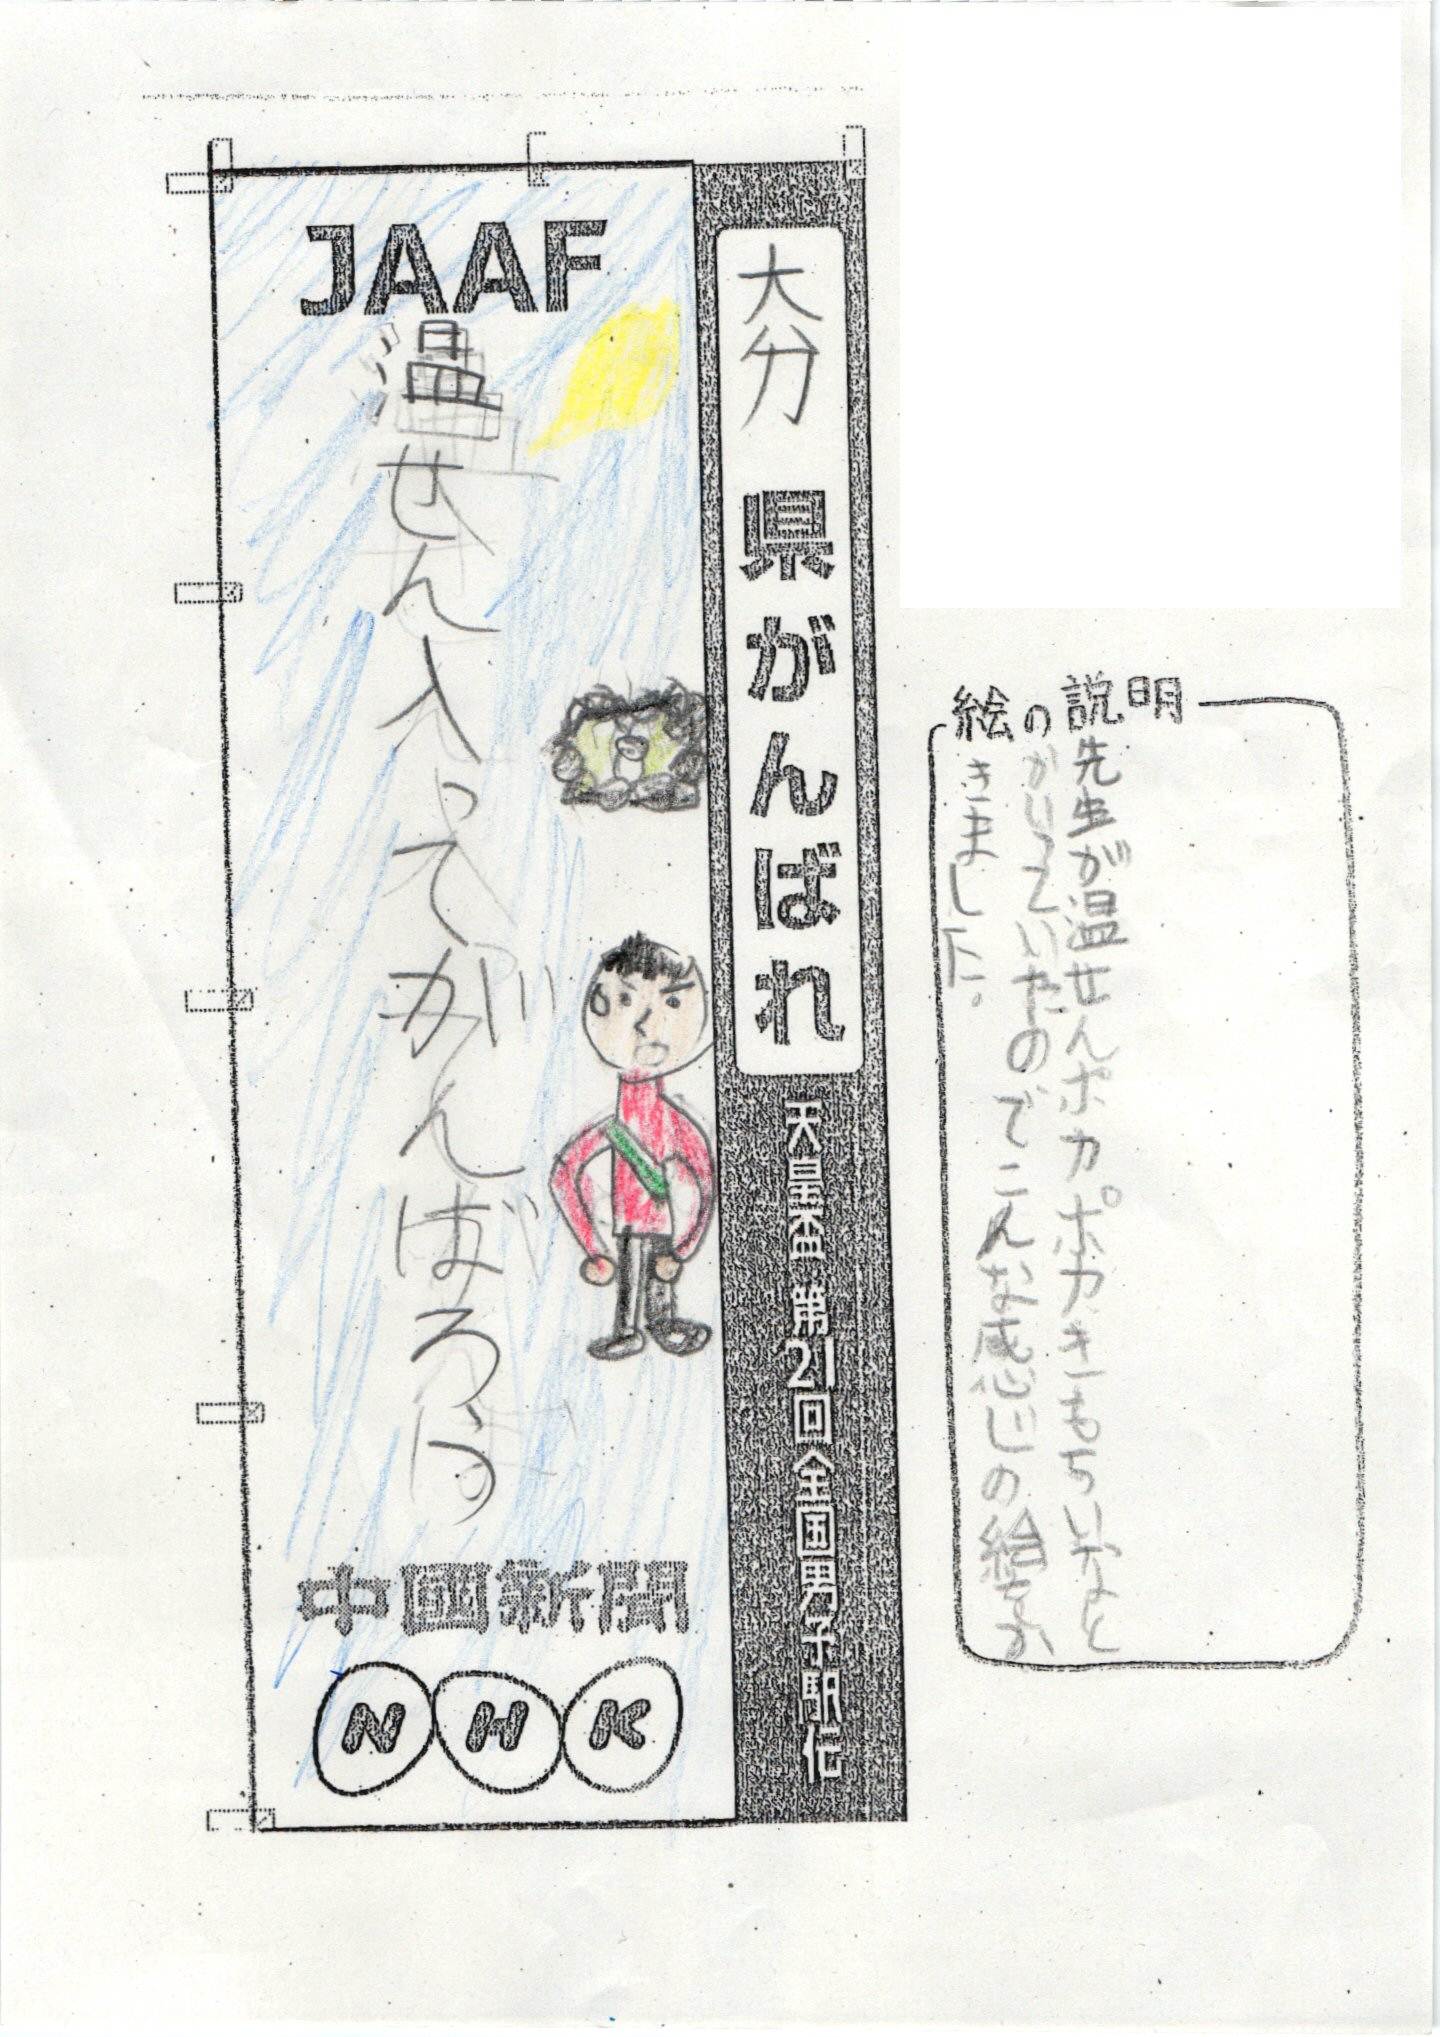 JAAF
大分県がんばれ
天皇盃 第21回全国男子駅伝
温せん入ってがんばろう
中國新聞
NHK
絵の説明
先生が温せんポカポカきもちいなと
かいっていたのでこんな感じの絵をか
きました。